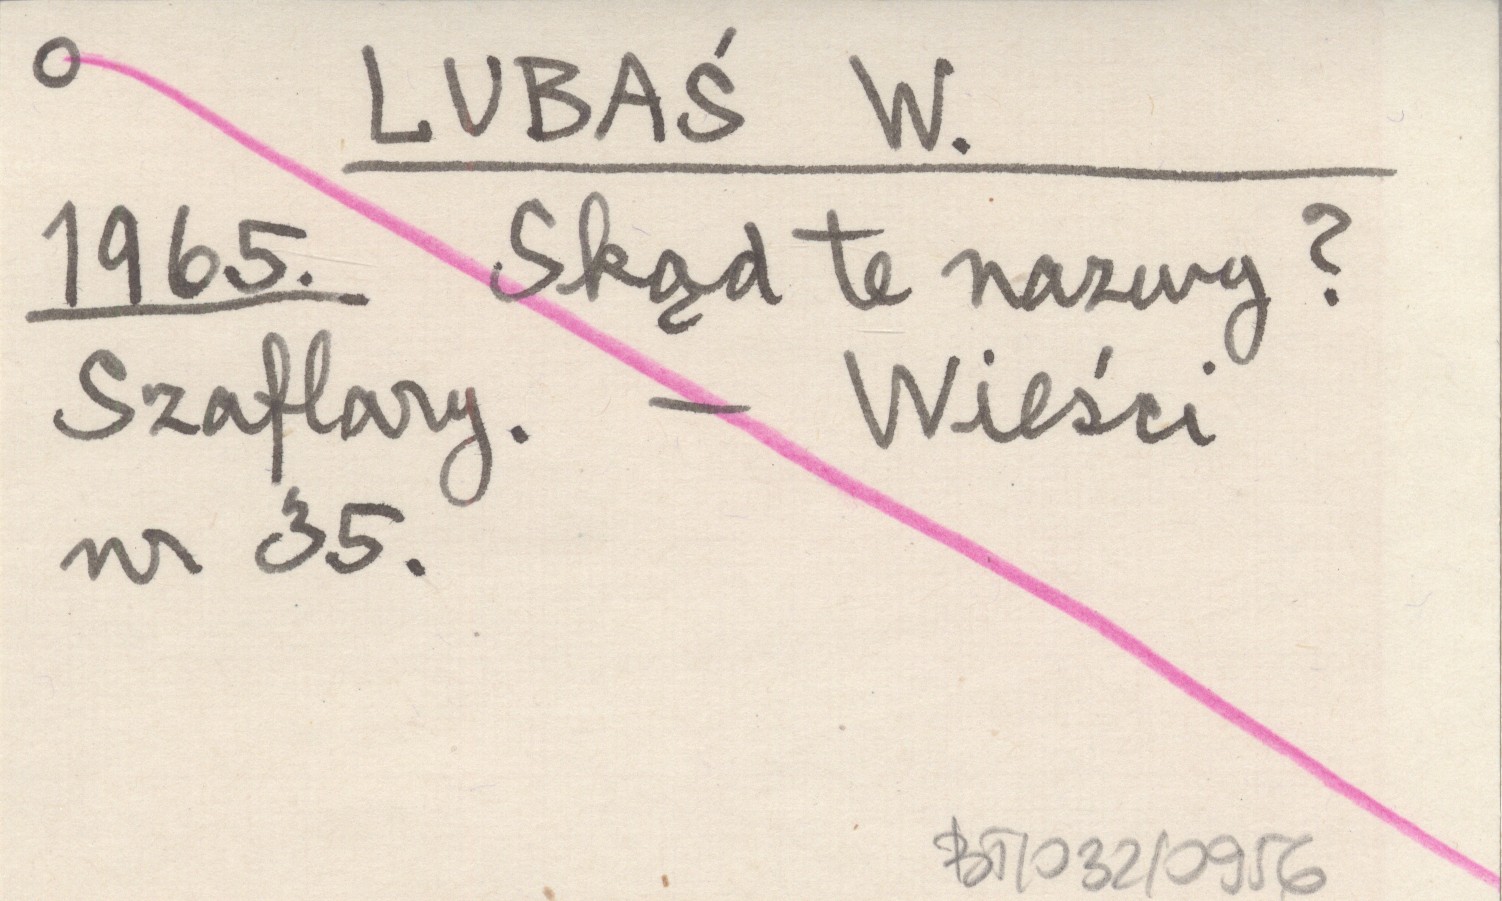 o LUBAŚ W.
1965. Skąd te nazwy?
Szaflary. — Wieści
nr 35.
BT/032/0956